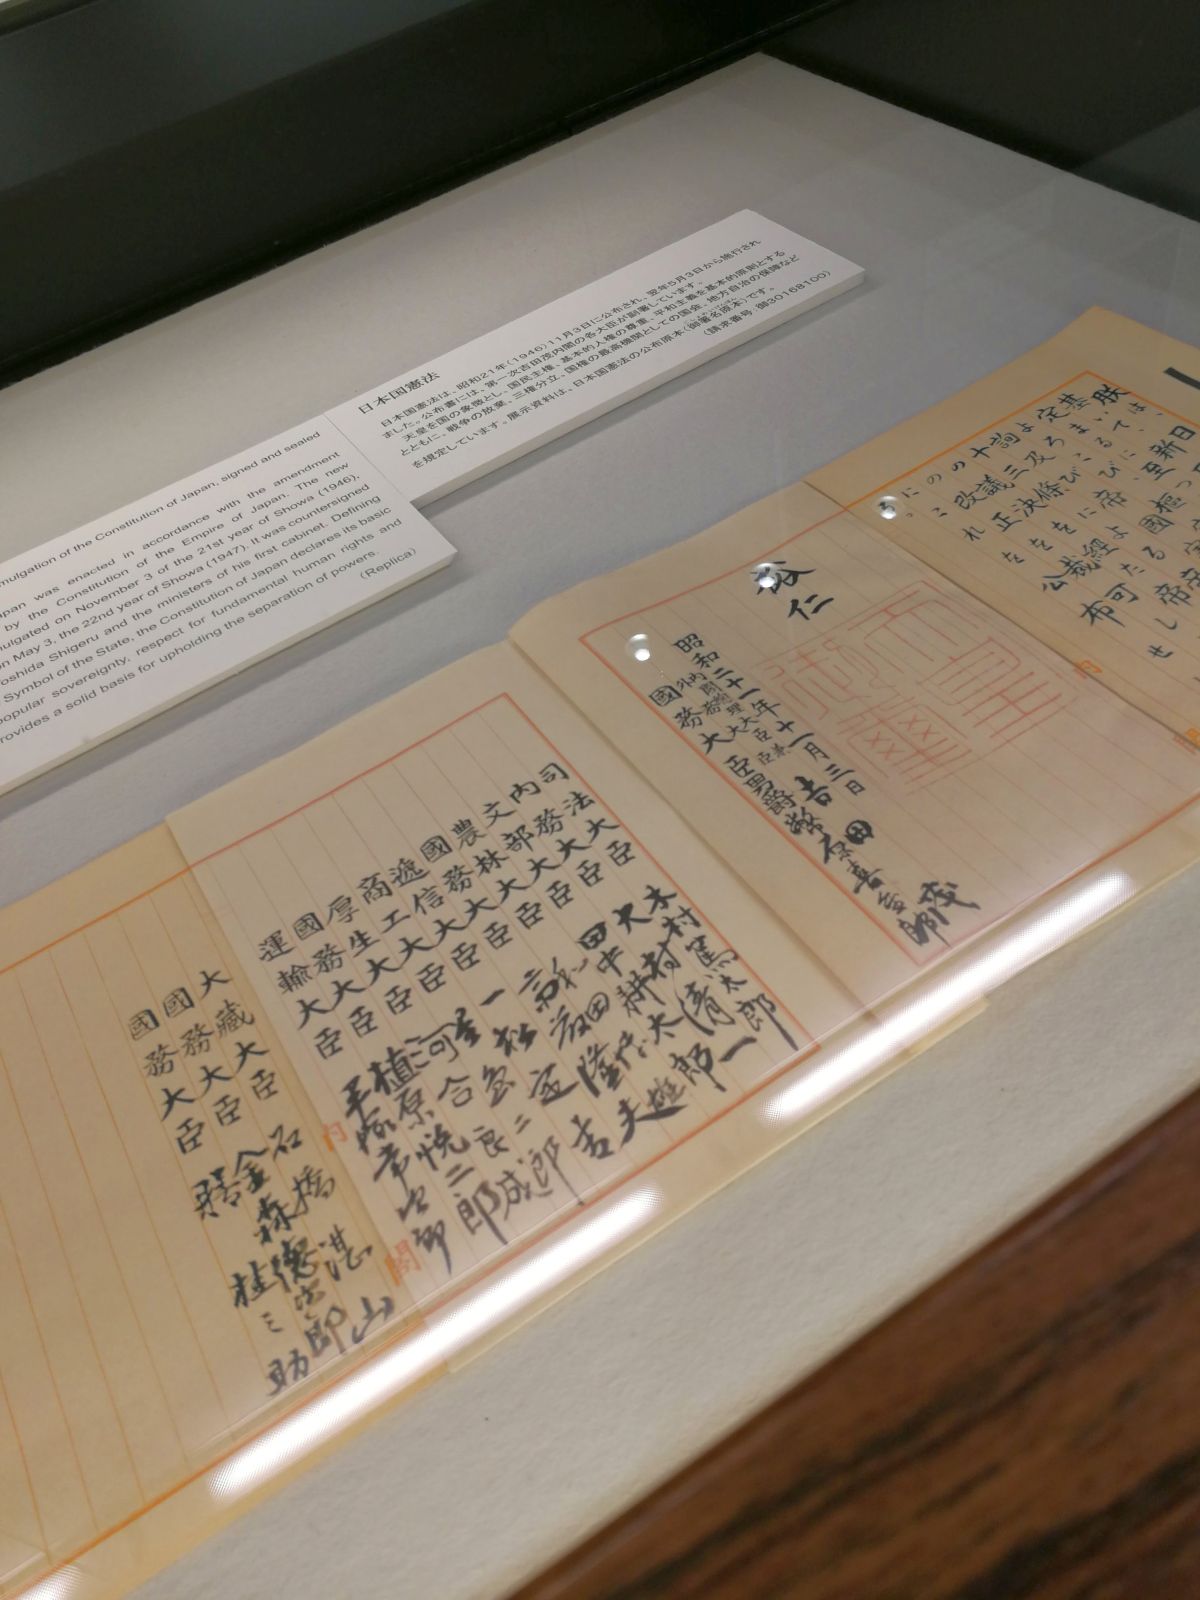 日本国憲法
日本国憲法は、昭和21年(1946)11月3日に公布され、翌年5月3日から施行され
ました。公布書には、第一次吉田茂内閣の各大臣が副署しています。
天皇を国の象徴とし、国民主権、基本的人権の尊重、平和主義を基本的原則とする
とともに、戦争の放棄、三権分立、国権の最高機関としての国会、地方自治の保障など
を規定しています。展示資料は、日本国憲法の公布原本(御署名原本)です。
(請求番号:御30168100)
mulgation of the Constitution of Japan, signed and sealed
pan was enacted in accordance with the amendment
by the Constitution of the Empire of Japan. The new
mulgated on November 3 of the 21st year of Showa (1946),
on May 3, the 22nd year of Showa (1947). It was countersigned
Yoshida Shigeru and the ministers of his first cabinet. Defining
Symbol of the State, the Constitution of Japan declares its basic
popular sovereignty, respect for fundamental human rights and
rovides a solid basis for upholding the separation of powers.
(Replica)
朕は、日
基いて、新
定まるに至つ
よろこび、
詢及び帝國
十三條に
の議決を経た
の改正を裁可し
にこれを公布せ
る。
裕仁
御璽
昭和二十一年十一月三日
内閣総理大臣兼
外務大臣 吉田茂
國務大臣男爵 幣原喜重郎
司法大臣 木村篤太郎
内務大臣 大村清一
文部大臣 田中耕太郎
農林大臣 和田博雄
國務大臣 斎藤隆夫
逓信大臣 一松定吉
商工大臣 星島二郎
厚生大臣 河合良成
國務大臣 植原悦二郎
運輸大臣 平塚常次郎
大藏大臣 石橋湛山
國務大臣 金森徳次郎
國務大臣 膳桂之助
内
閣